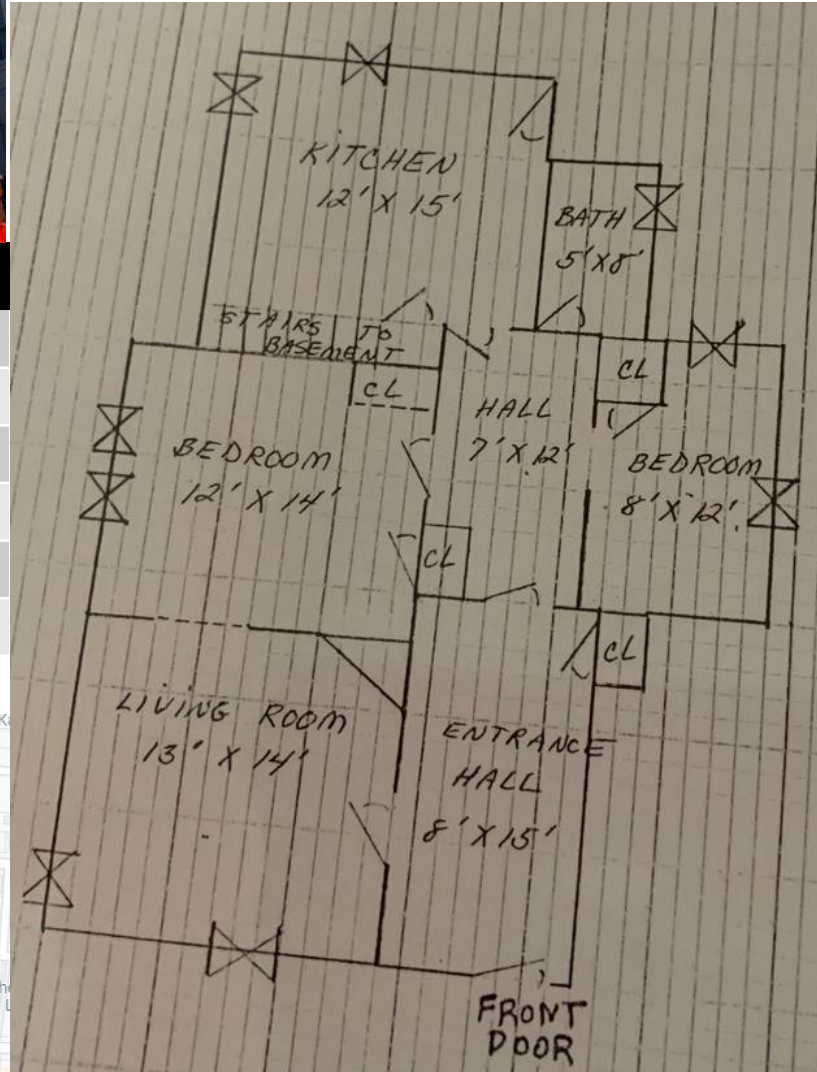 KITCHEN
12' X 15'
BATH
5' X 8'
STAIRS TO
BASEMENT
CL
CL
HALL
7' X 12'
BEDROOM
12' X 14'
BEDROOM
8' X 12'
CL
CL
LIVING ROOM
13' X 14'
ENTRANCE
HALL
8' X 15'
FRONT
DOOR